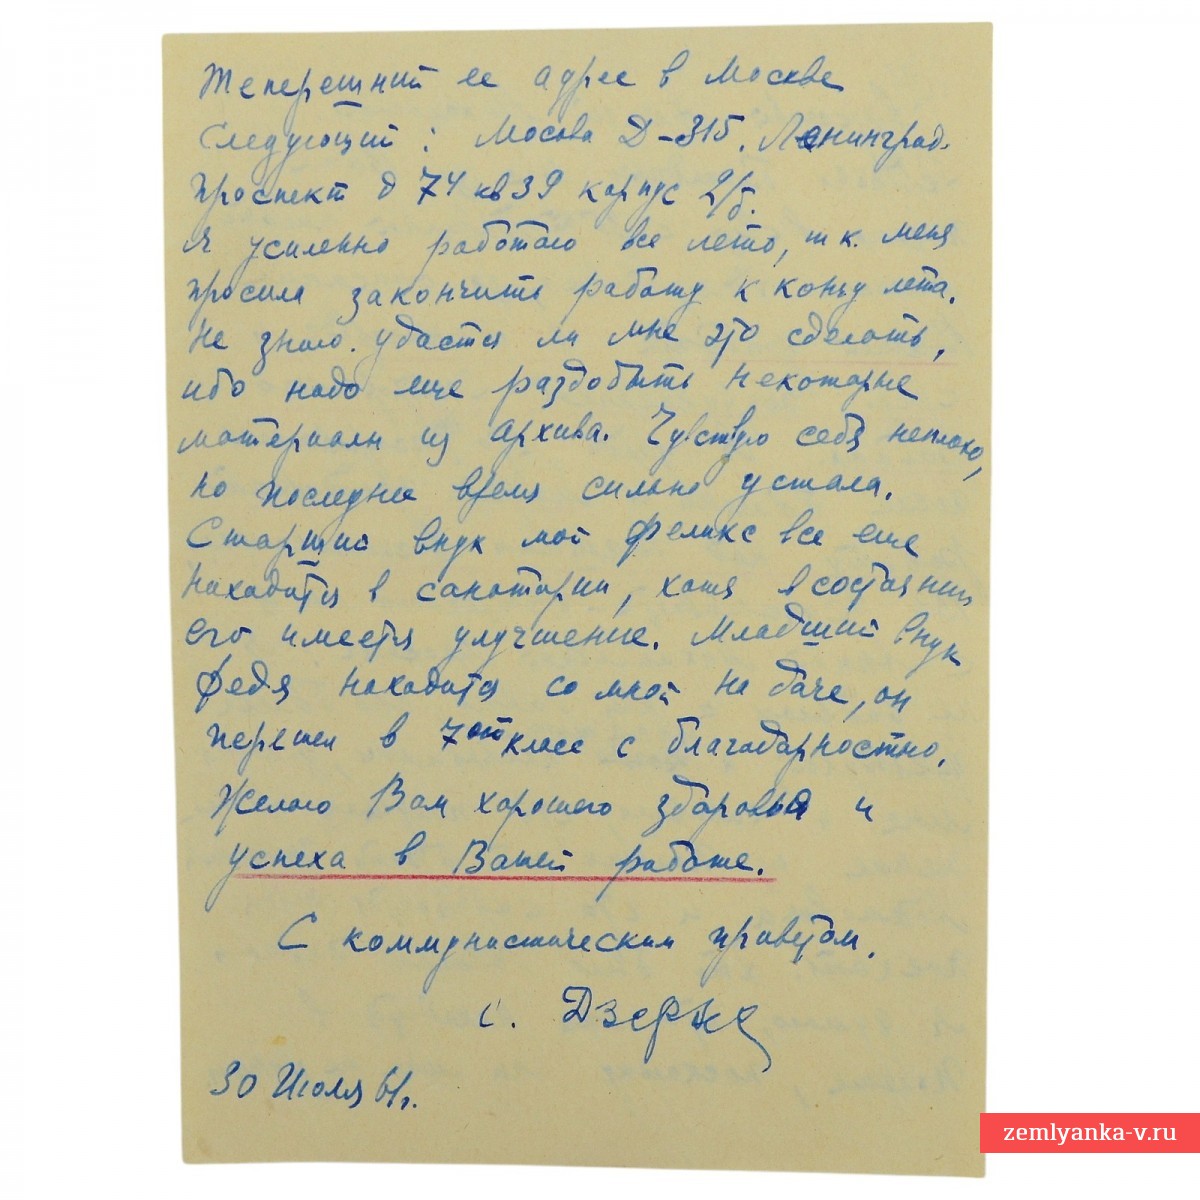 Теперешний ее адрес в Москве
следующий: Москва Д-315. Ленинград.
проспект д 74 кв 39 корпус 2/б.
Я усиленно работаю все лето, т к. меня
просили закончить работу к концу лета.
Не знаю. удастся ли мне это сделать,
ибо надо еще раздобыть некоторые
материалы из архива. Чувствую себя неплохо,
но последнее время сильно устала.
Старший внук мой Феликс все еще
находится в санатории, хотя в состоянии
его имеется улучшение. Младший внук
Федя находится со мной на даче, он
перешел в 7ой класс с благодарностью.
Желаю Вам хорошего здоровья и
успеха в Вашей работе.
С коммунистическим приветом.
С. Дзерж
30 Июля 61г.
zemlyanka-v.ru